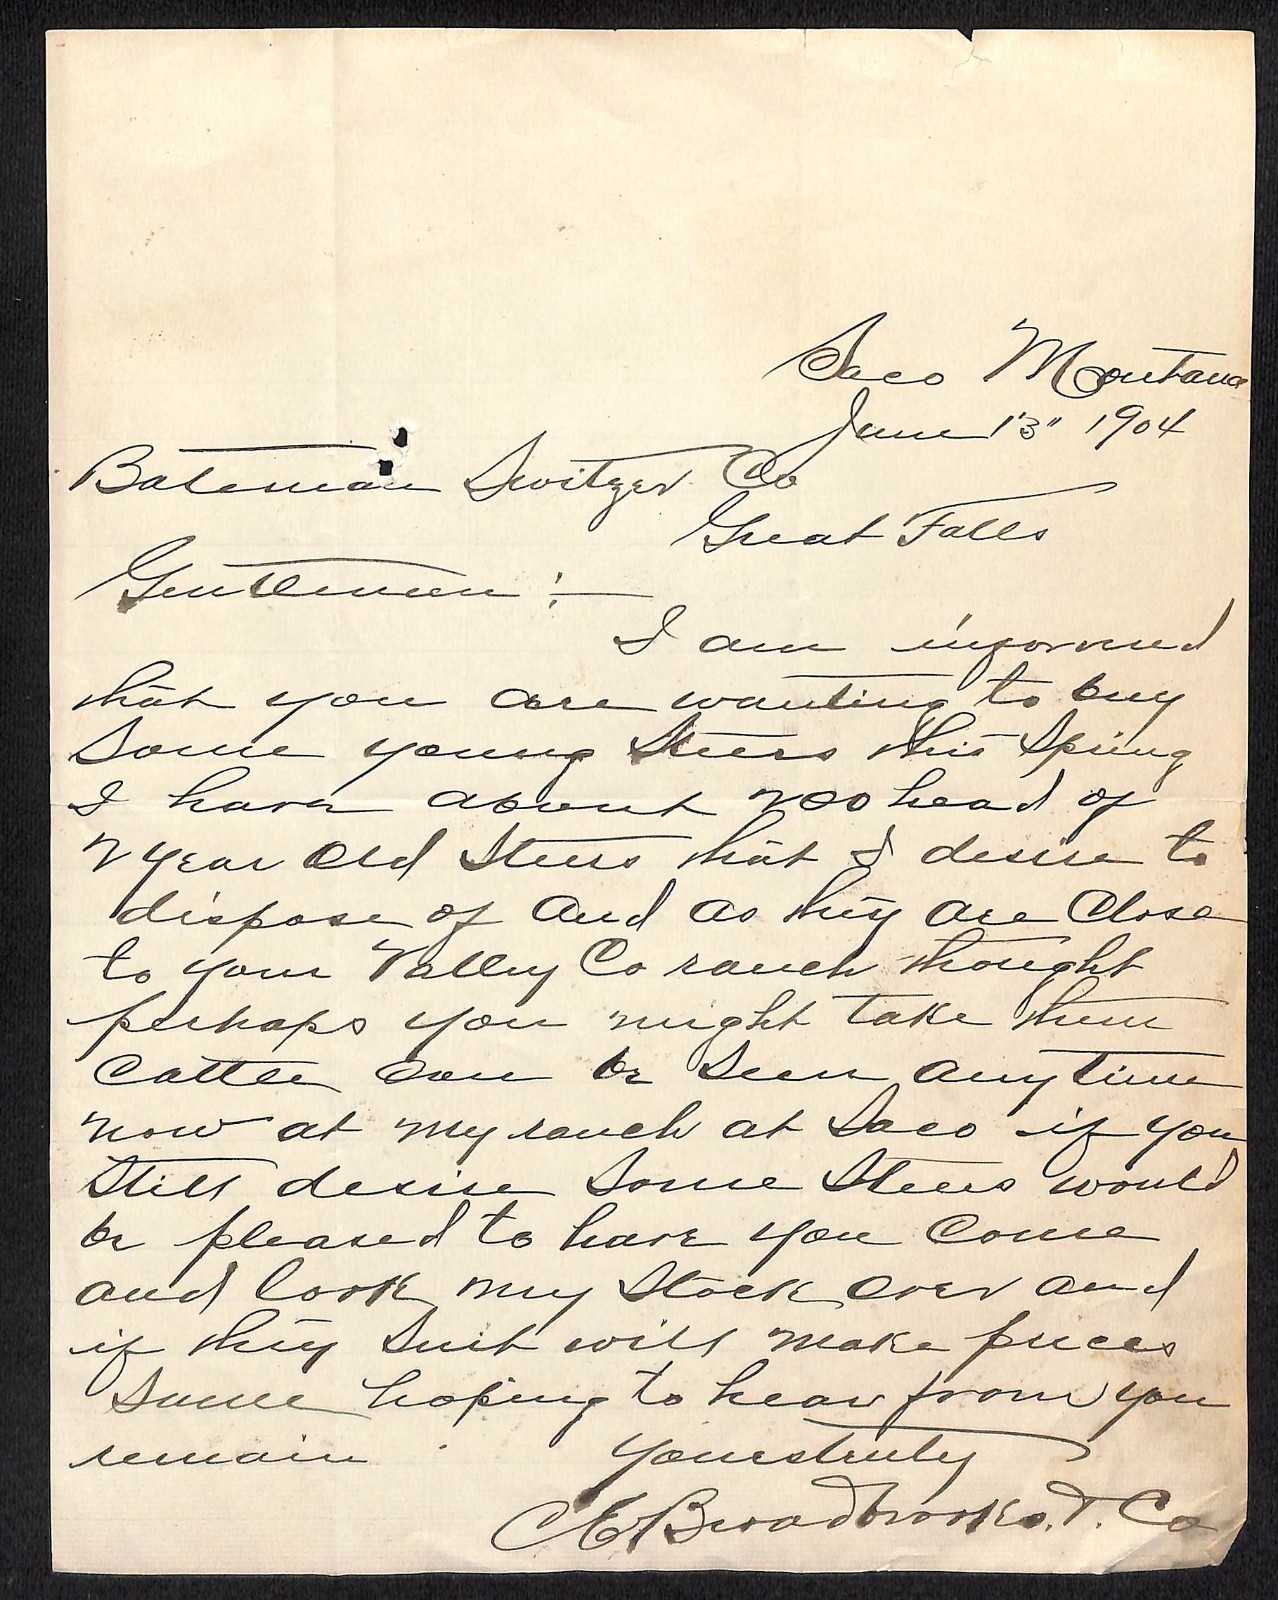 Saco Montana
June 13" 1904
Bateman Switzer Co
Great Falls
Gentlemen :—
I am informed
that you are wanting to buy
Some young Steers this Spring
I have about 200 head of
2 year Old Steers that I desire to
dispose of and as they are Close
to your Valley Co ranch thought
perhaps you might take them
Cattle can be Seen anytime
now at my ranch at Saco if you
Still desire Some Steers would
be pleased to have you Come
and look my Stock over and
if they Suit will make prices
Same hoping to hear from you
remain
Yourstruly
C E Broadbrooks. & Co